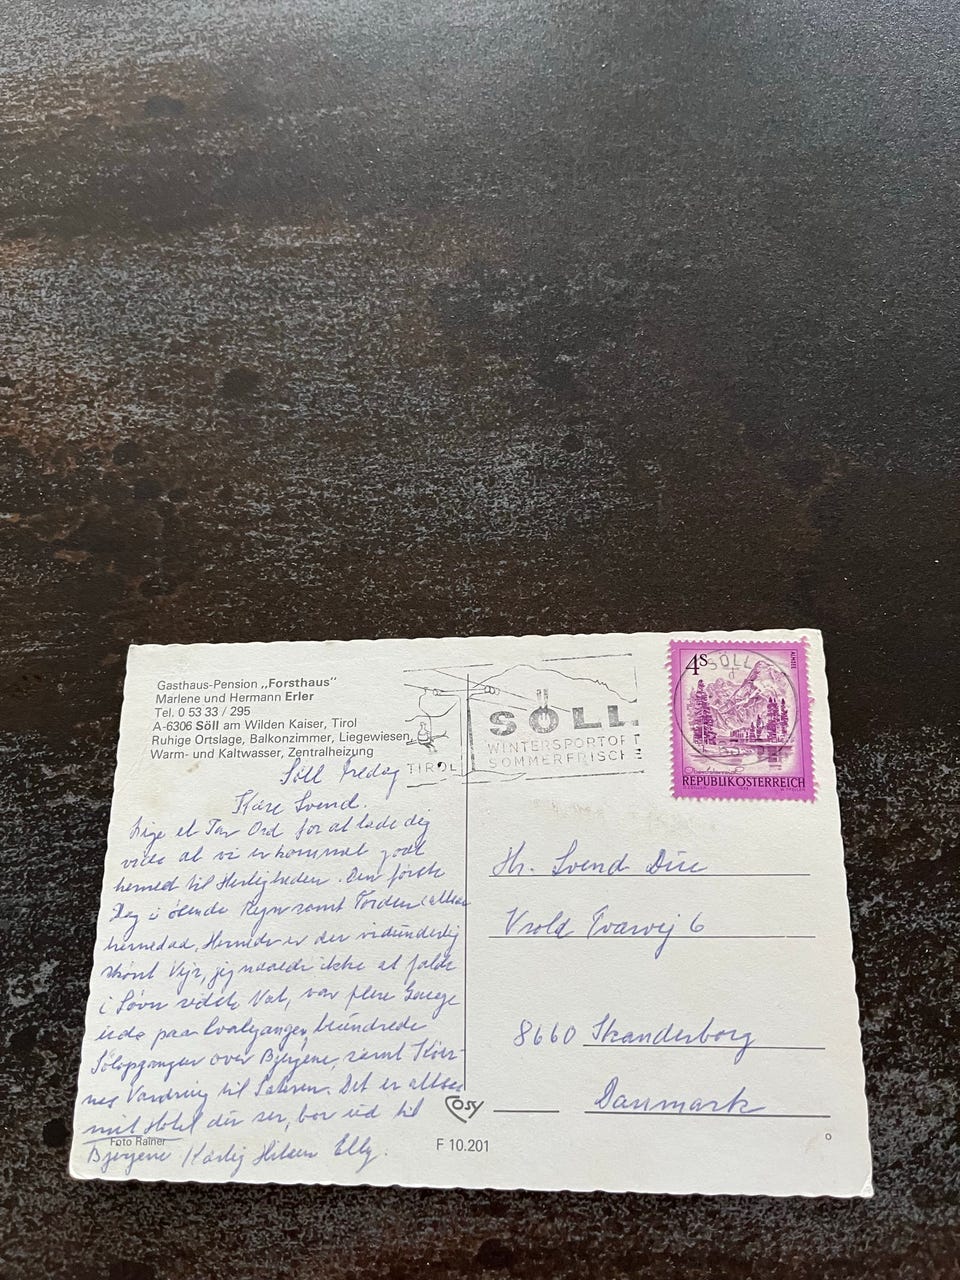 Gasthaus-Pension „Forsthaus"
Marlene und Hermann Erler
Tel. 0 53 33 / 295
A-6306 Söll am Wilden Kaiser, Tirol
Ruhige Ortslage, Balkonzimmer, Liegewiesen,
Warm- und Kaltwasser, Zentralheizung
TIROL
SÖLL
WINTERSPORTORT
SOMMERFRISCHE
4S
SÖLL
ALMSEE
REPUBLIK ÖSTERREICH
Söll Fredag
Kære Svend.
Lige et Par Ord for at lade dig
vide at vi er kommet godt
herned til Herligheden. Den første
Dag i øsende Regn samt Torden
hernedad, Hernede er der vidunderlig
skønt Vejr, jeg naaede ikke at falde
i Søvn sidste Nat, var flere Gange
ude paa Svalegangen, beundrede
Solopgangen over Bjergene, samt
Vandring til Det er altsaa
mit Hotel du ser, bor ud til
Bjergene Kærlig Hilsen Elly.
Hr. Svend Due
Vrold Tværvej 6
8660 Skanderborg
Danmark
Foto Rainer
Cosy
F 10.201